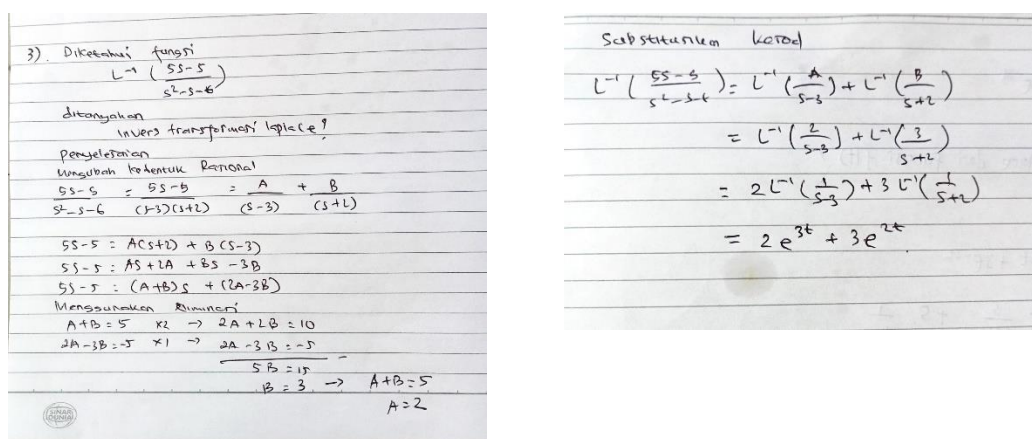 3). Diketahui fungsi
L⁻¹ (5s-5 / s²-s-6)
ditanyakan
invers transformasi laplace?
penyelesaian
Mengubah kebentuk Rasional
5s-5 / s²-s-6 = 5s-5 / (s-3)(s+2) = A / (s-3) + B / (s+2)
5s-5 = A(s+2) + B(s-3)
5s-5 = As+2A + Bs -3B
5s-5 = (A+B)s + (2A-3B)
Menggunakan Eliminasi
A+B = 5 ×2 → 2A+2B = 10
2A-3B = -5 ×1 → 2A-3B = -5
−
5B = 15
B = 3 → A+B = 5
A = 2
SINAR DUNIA
L⁻¹ (5s-5 / s²-s-6) = L⁻¹ (A / s-3) + L⁻¹ (B / s+2)
= L⁻¹ (2 / s-3) + L⁻¹ (3 / s+2)
= 2 L⁻¹ (1 / s-3) + 3 L⁻¹ (1 / s+2)
= 2e³ᵗ + 3e²ᵗ